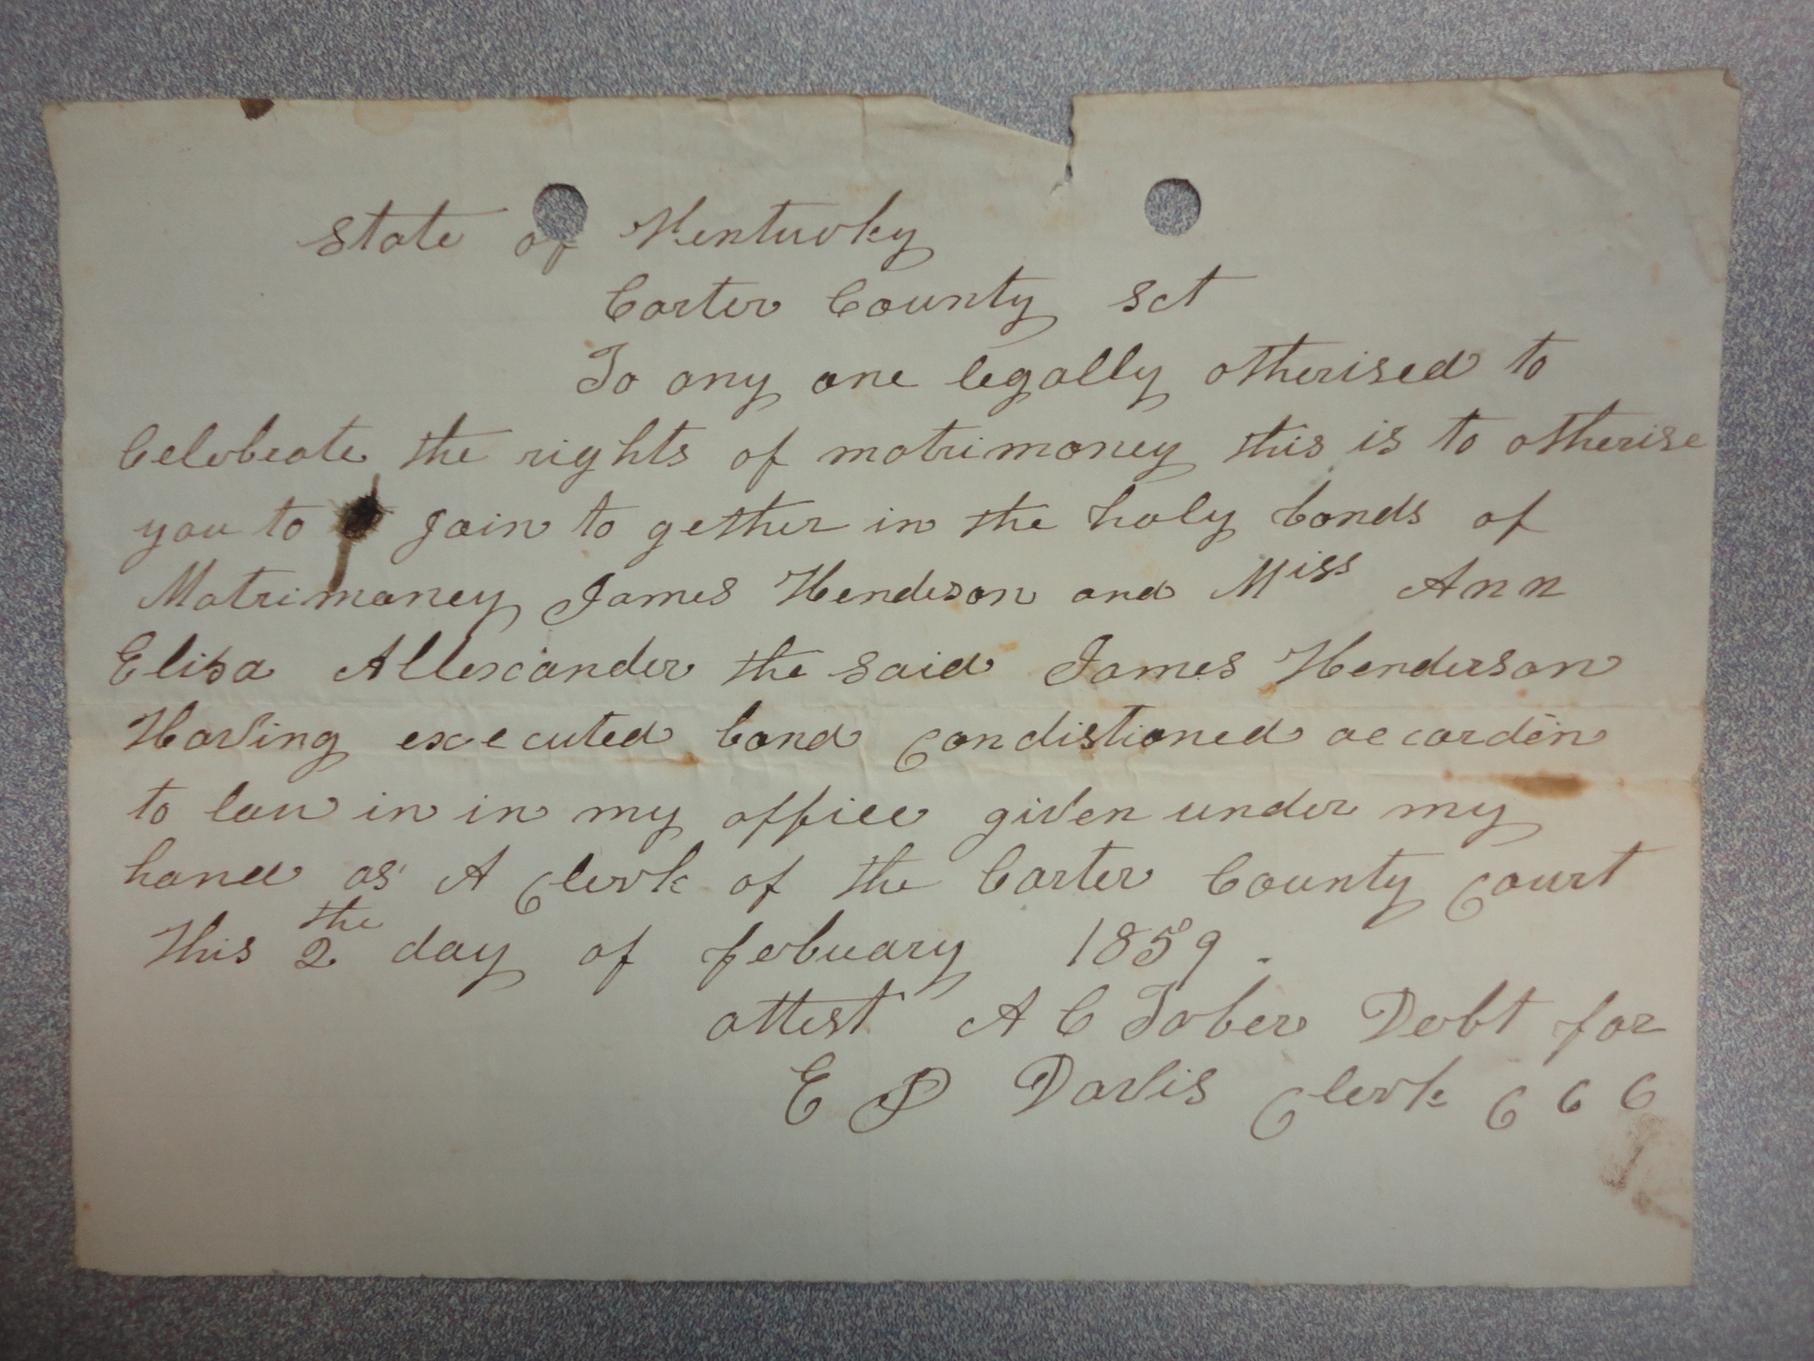 State of Kentucky
Carter County Sct
To any one legally otherised to
Celebeate the rights of matrimoney this is to otherise
you to Join to gether in the holy bonds of
Matrimoney James Henderson and Miss Ann
Eliza Allexander the said James Henderson
Having executed bond Condistioned accorden
to law in in my office given under my
hand as A Clerk of the Carter County Court
This 2 the day of febuary 1859.
attest A C Tober Debt for
E P Davis Clerk C C C